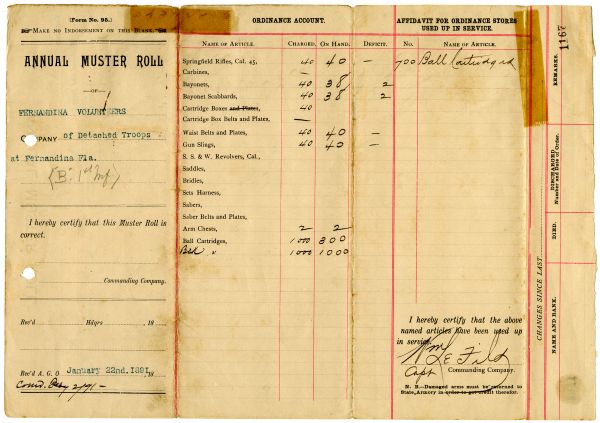 (Form No. 95.)
MAKE NO INDORSEMENT ON THIS BLANK.
ANNUAL MUSTER ROLL
—OF—
FERNANDINA VOLUNTEERS
COMPANY of Detached Troops
at Fernandina Fla.
(B. 1st Inf)
I hereby certify that this Muster Roll is
correct.
Commanding Company.
Rec'd Hdqrs 18
Rec'd A. G. O January 22nd, 1891, 18
ORDINANCE ACCOUNT.
NAME OF ARTICLE. CHARGED. ON HAND. DEFICIT.
Springfield Rifles, Cal. 45, 40 40 —
Carbines, —
Bayonets, 40 38 2
Bayonet Scabbards, 40 38 2
Cartridge Boxes and Plates, 40
Cartridge Box Belts and Plates, —
Waist Belts and Plates, 40 40 —
Gun Slings, 40 40 —
S. S. & W. Revolvers, Cal.,
Saddles,
Bridles,
Sets Harness,
Sabers,
Saber Belts and Plates,
Arm Chests, 2 2
Ball Cartridges, 1000 300
" 1000 1000
AFFIDAVIT FOR ORDNANCE STORES
USED UP IN SERVICE.
No. NAME OF ARTICLE.
700 Ball Cartridges
I hereby certify that the above
named articles have been used up
in service.
Wm
Capt Commanding Company.
N. B.—Damaged arms must be returned to
State Armory in order to get credit therefor.
1167
REMARKS.
DISCHARGED
Number and Date of Order.
DIED.
CHANGES SINCE LAST
NAME AND RANK.